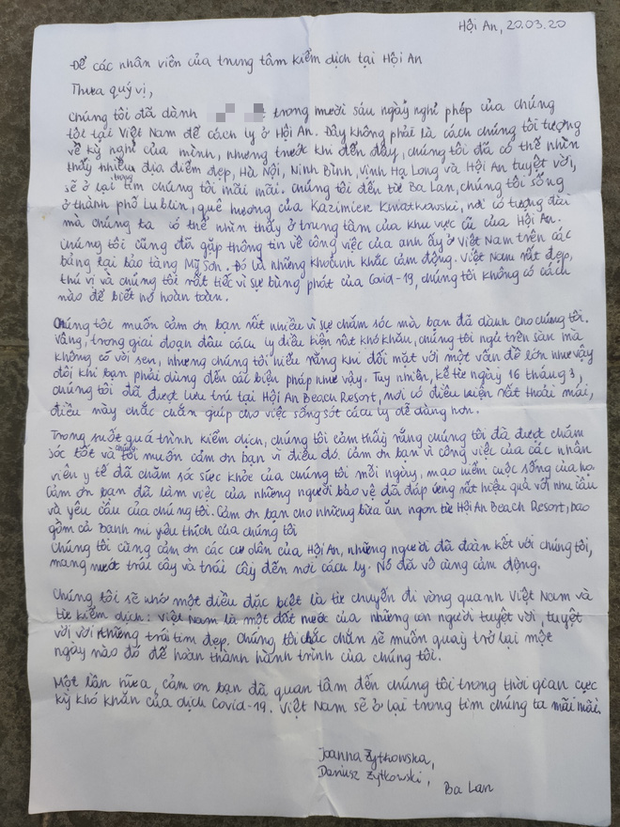 Hội An, 20.03.20
Để các nhân viên của trung tâm kiểm dịch tại Hội An
Thưa quý vị,
Chúng tôi đã dành trong mười sáu ngày nghỉ phép của chúng
tôi tại Việt Nam để cách ly ở Hội An. Đây không phải là cách chúng tôi tượng
về kỳ nghỉ của mình, nhưng trước khi đến đây, chúng tôi đã có thể nhìn
thấy nhiều địa điểm đẹp, Hà Nội, Ninh Bình, Vịnh Hạ Long và Hội An tuyệt vời,
sẽ ở lại trong tim chúng tôi mãi mãi. Chúng tôi đến từ Ba Lan, chúng tôi sống
ở thành phố Lublin, quê hương của Kazimier Kwiatkowski, nơi có tượng đài
mà chúng ta có thể nhìn thấy ở trung tâm của khu vực cũ của Hội An.
Chúng tôi cũng đã gặp thông tin về công việc của anh ấy ở Việt Nam trên các
bảng tại bảo tàng Mỹ Sơn. Đó là những khoảnh khắc cảm động. Việt Nam rất đẹp,
thú vị và chúng tôi rất tiếc vì sự bùng phát của Covid-19, chúng tôi không có cách
nào để biết nó hoàn toàn.
Chúng tôi muốn cảm ơn bạn rất nhiều vì sự chăm sóc mà bạn đã dành cho chúng tôi.
Vâng, trong giai đoạn đầu cách ly điều kiện rất khó khăn, chúng tôi ngủ trên sàn mà
không có vòi sen, nhưng chúng tôi hiểu rằng khi đối mặt với một vấn đề lớn như vậy
đôi khi bạn phải dùng đến các biện pháp như vậy. Tuy nhiên, kể từ ngày 16 tháng 3,
chúng tôi đã được lưu trú tại Hội An Beach Resort, nơi có điều kiện rất thoải mái,
điều này chắc chắn giúp cho việc sống sót cách ly dễ dàng hơn.
Trong suốt quá trình kiểm dịch, chúng tôi cảm thấy rằng chúng tôi đã được chăm
sóc tốt và chúng tôi muốn cảm ơn bạn vì điều đó. Cảm ơn bạn vì công việc của các nhân
viên y tế đã chăm sóc sức khỏe của chúng tôi mỗi ngày, mạo hiểm cuộc sống của họ.
Cảm ơn bạn đã làm việc của những người bảo vệ đã đáp ứng rất hiệu quả với nhu cầu
và yêu cầu của chúng tôi. Cảm ơn bạn cho những bữa ăn ngon từ Hội An Beach Resort, bao
gồm cả banh mi yêu thích của chúng tôi
Chúng tôi cũng cảm ơn các cư dân của Hội An, những người đã đoàn kết với chúng tôi,
mang nước trái cây và trái cây đến nơi cách ly. Nó đã vô cùng cảm động.
Chúng tôi sẽ nhớ một điều đặc biệt là từ chuyến đi vòng quanh Việt Nam và
từ kiểm dịch: Việt Nam là một đất nước của những con người tuyệt vời, tuyệt
vời với những trái tim đẹp. Chúng tôi chắc chắn sẽ muốn quay trở lại một
ngày nào đó để hoàn thành hành trình của chúng tôi.
Một lần nữa, cảm ơn bạn đã quan tâm đến chúng tôi trong thời gian cực
kỳ khó khăn của dịch Covid-19. Việt Nam sẽ ở lại trong tim chúng ta mãi mãi.
Joanna Żytkowska,
Dariusz Żytkowski,
Ba Lan